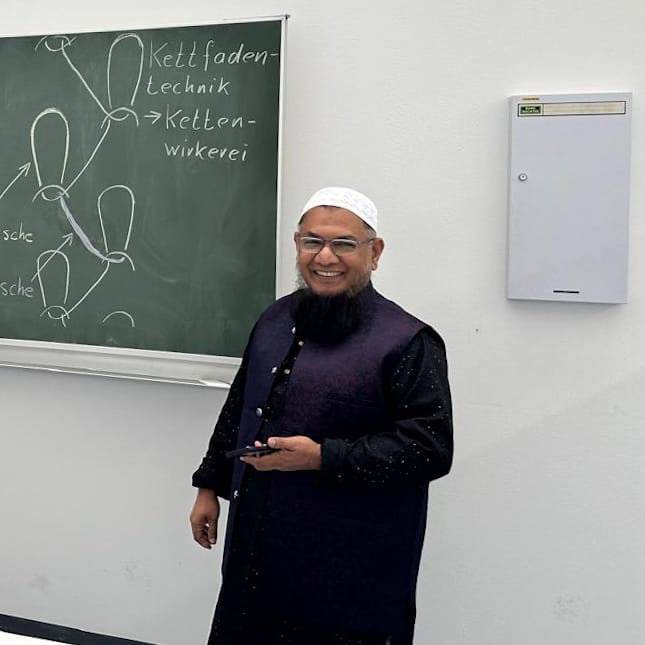 Kettfaden-
technik
→ Ketten-
wirkerei
sche
sche